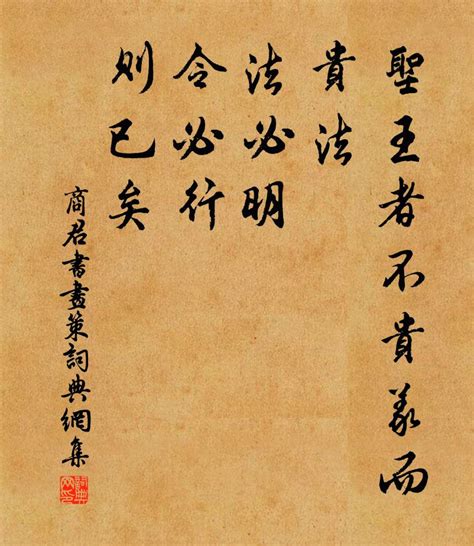 聖王者不貴義而
貴法
法必明
令必行
則已矣
商君書畫策詞典網集